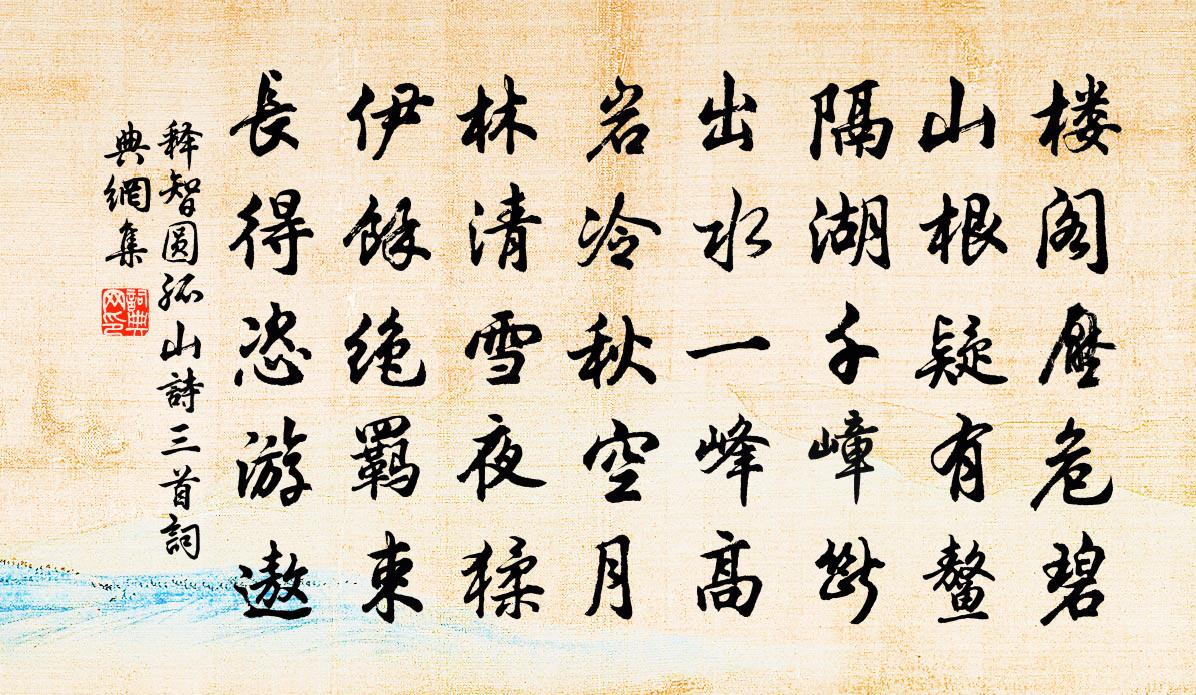 楼阁壓危碧
山根疑有鳌
隔湖千嶂断
出水一峰高
岩冷秋空月
林清雪夜猱
伊餘绝羁束
長得恣游遨
释智圆孤山詩三首詞
典網集
詞典网印